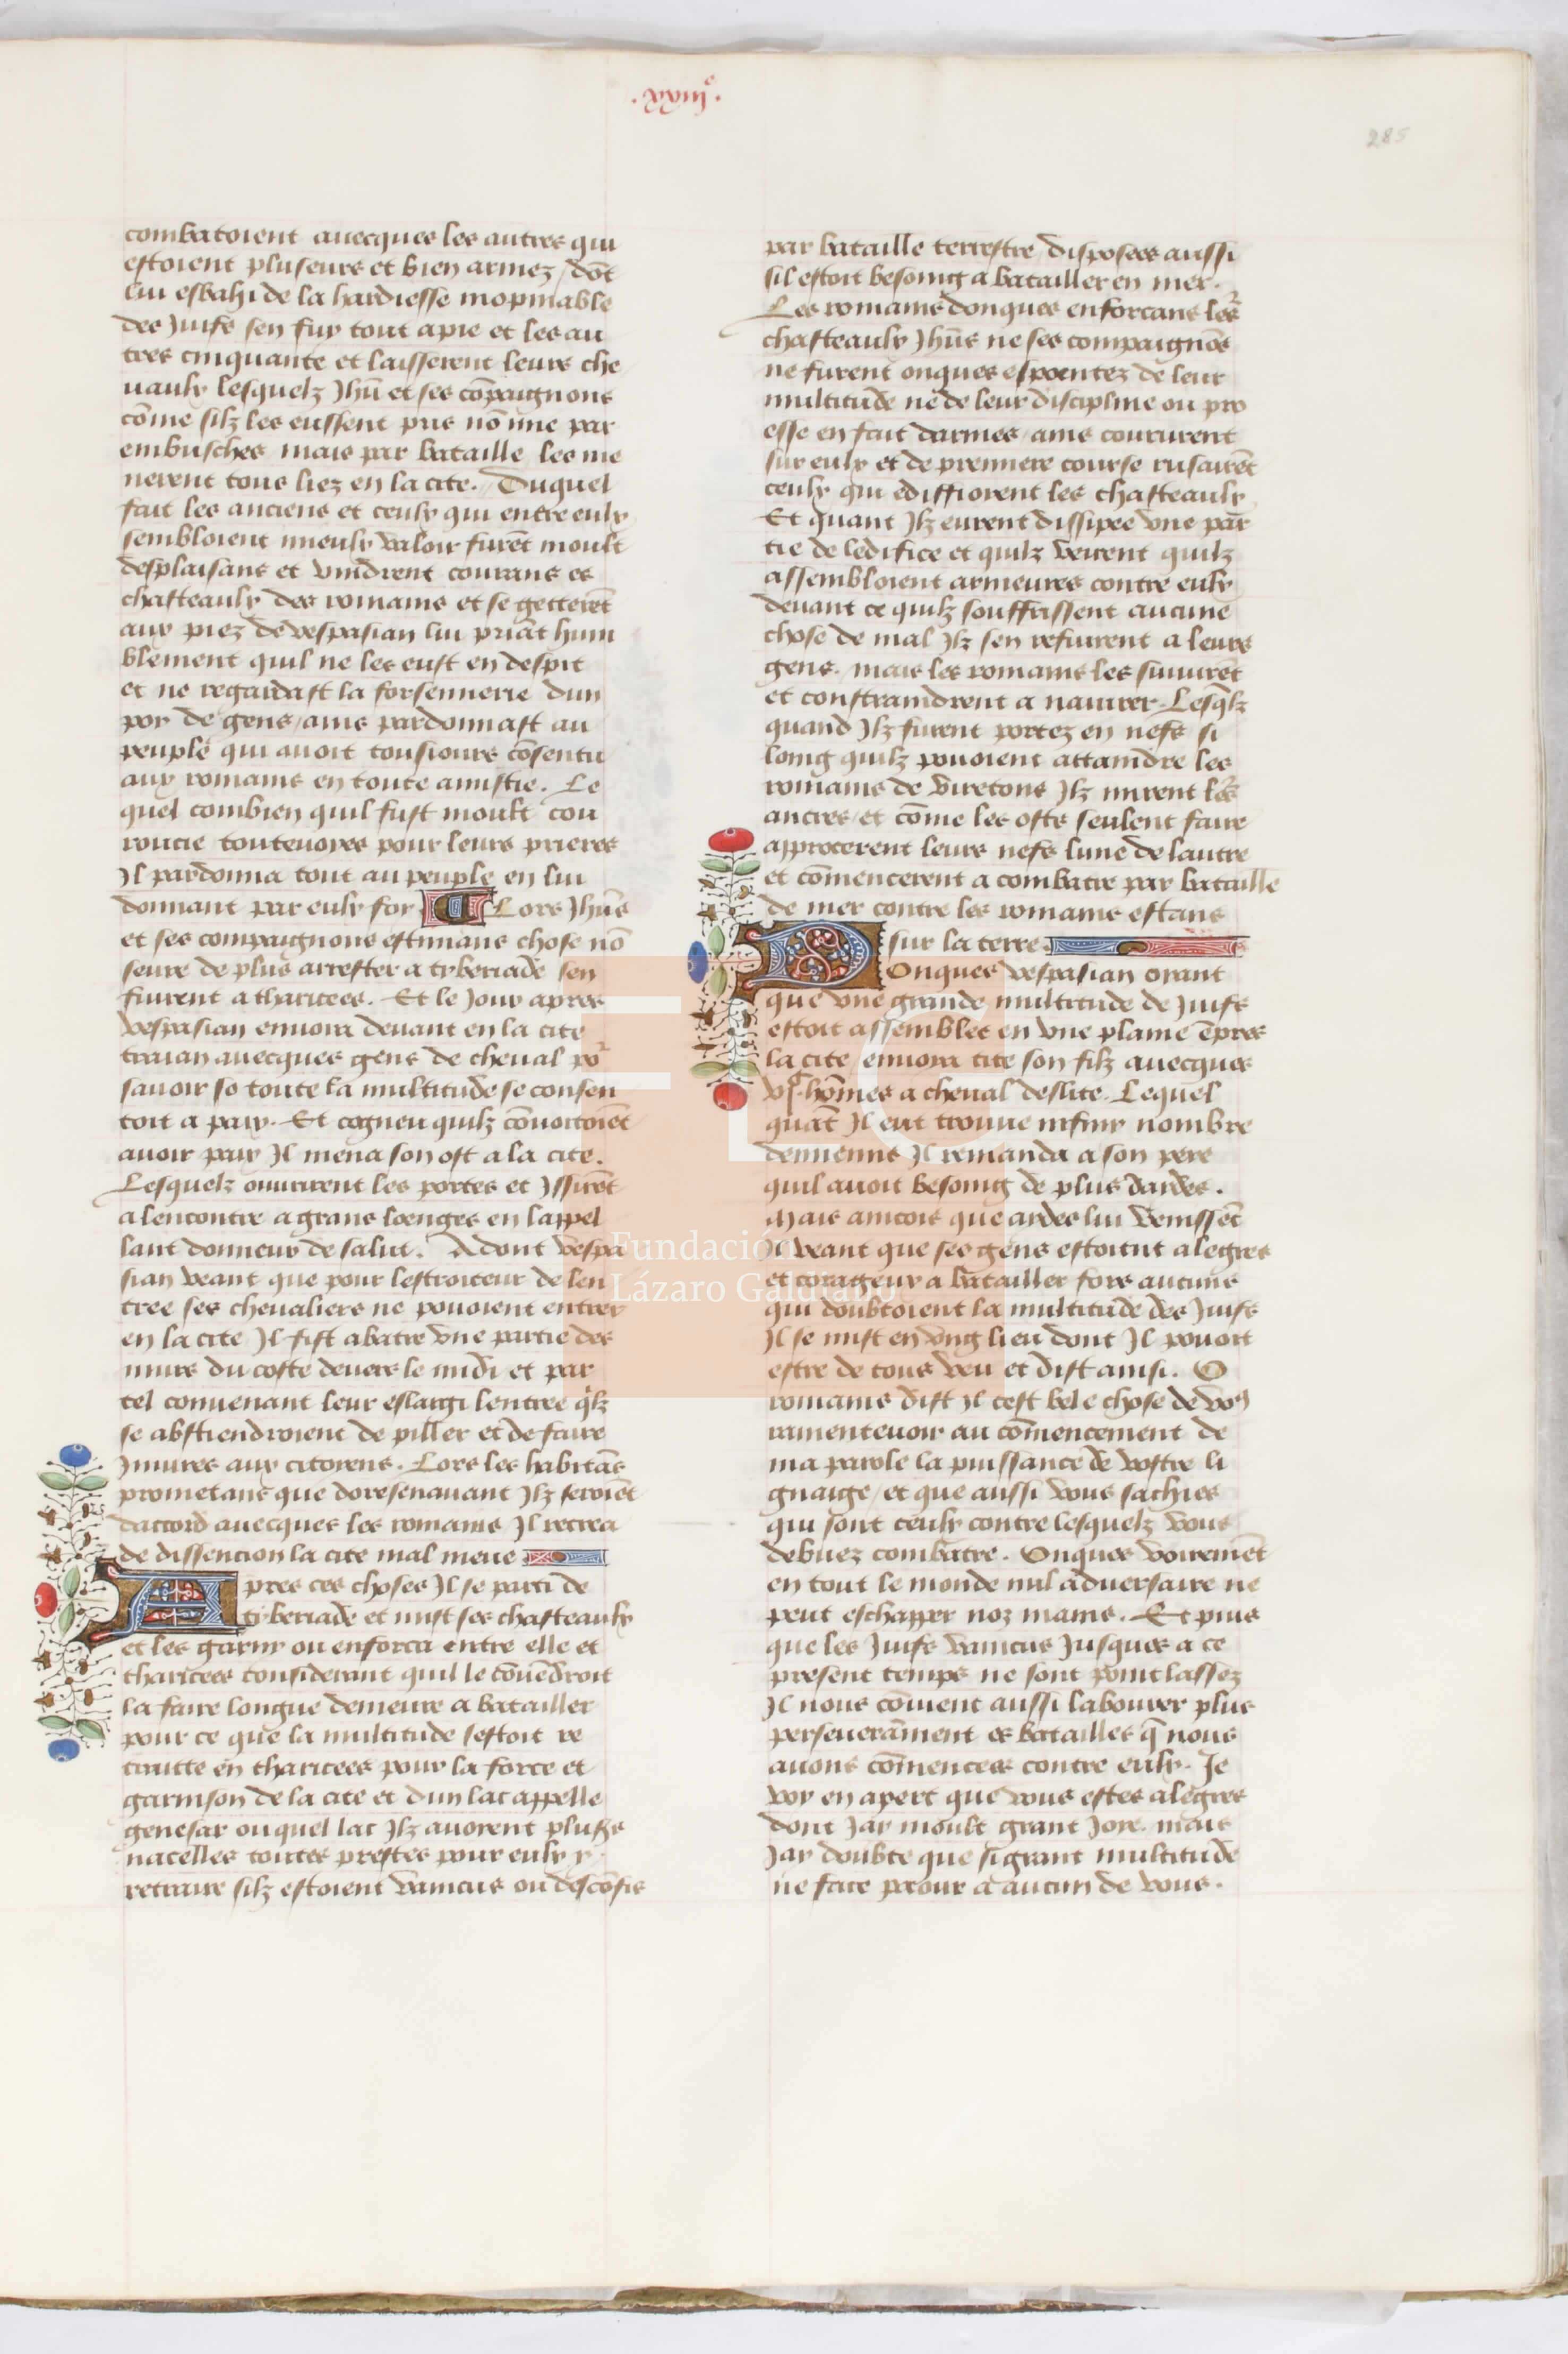 .xxiiij.e
285
combatoient auecques les autres qui
estoient pluseurs et bien armez / dōt
lui esbahi de la hardiesse inopinable
des Juifs sen fuy tout a pie et les au
tres cinquante et laisserent leurs che
uaulx lesquelz Jhū et ses cōpaignons
cōme silz les eussent pris nō mie par
embusches mais par bataille les me
nerent tous liez en la cite. Duquel
fait les anciens et ceulx qui entre eulx
sembloient mieulx valoir furēt moult
desplaisans et vindrent courans es
chasteaulx des romains et se getterēt
aux piez de vespasian lui priāt hum
blement quil ne les eust en despit
et ne regardast la forsennerie dun
poy de gens / ains pardonnast au
peuple qui auoit tousiours cōsentu
aux romains en toute amistie. Le
quel combien quil fust moult cou
roucie toutenoyes pour leurs prieres
Jl pardonna tout au peuple en lui
donnant par eulx foy Lors Jhūs
et ses compaignons estimans chose nō
seure de plus arrester a tyberiade sen
fuirent a tharicees. Et le Jour apres
vespasian enuoia deuant en la cite
traian auecques gens de cheual po2
sauoir so toute la multitude se consen
toit a paix. Et cogneu quilz cōuoitoiēt
auoir paix Jl mena son ost a la cite.
Lesquelz ouurirent les portes et Jssirēt
a lencontre a grans loenges en lappel
lant donneur de salut. Adont vespa
sian veant que pour lestroiteur de len
tree ses cheualiers ne pouoient entrer
en la cite Jl fist abatre vne partie des
murs du coste deuers le midi et par
tel conuenant leur eslargi lentree q̄lz
se abstiendroient de piller et de faire
Jniures aux citoiens. Lors les habitās
prometans que doresenauant Jlz seroiēt
daccord auecques les romains Jl recrea
de dissencion la cite mal meue
Apres ces choses Jl se parti de
tyberiade et mist ses chasteaulx
et les garny ou enforca entre elle et
tharicees considerant quil le cōuēdroit
la faire longue demeure a batailler
pour ce que la multitude sestoit re
traitte en tharicees pour la force et
garnison de la cite et dun lac appelle
genesar ouquel lac Jlz auoient plus̄rs
nacelles toutes prestes pour eulx y
retraire silz estoient vaincus ou descōfis
par bataille terrestre / disposees aussi
sil estoit besoing a batailler en mer.
Les romains donques enforcans le2s
chasteaulx Jhūs ne ses compaignōs
ne furent onques espoentez de leur
multitude ne de leur discipline ou pro
esse en fait darmes / ains coururent
sur eulx et de premiere course rusairēt
ceulx qui ediffioient les chasteaulx
Et quant Jlz eurent dissipee vne par
tie de ledifice et quilz veirent quilz
assembloient armeures contre eulx
deuant ce quilz souffrissent aucune
chose de mal Jlz sen refuirent a leurs
gens. mais les romains les suiuirēt
et constraindrent a nauirer. Lesq̄lz
quand Jlz furent portez en nefs si
loing quilz pouoient attaindre les
romains de viretons Jlz mirent le2s
ancres / et cōme les osts seulent faire
approcerent leurs nefs lune de lautre
et cōmencerent a combatre par bataille
de mer contre les romains estans
sur la terre
DOnques vespasian oyant
que vne grande multitude de Juifs
estoit assemblee en vne plaine ēpres
la cite / enuoia tite son filz auecques
vjc. hōmes a cheual deslite. Lequel
quāt Jl eut trouue infiny nombre
dennemis Jl remanda a son pere
quil auoit besoing de plus dardes.
Mais aincois que ardes lui venissēt
Jl veant que ses gens estoient alegres
et corageux a batailler fors aucuns
qui doubtoient la multitude des Juifs
Jl se mist en vng lieu dont Jl pouoit
estre de tous veu et dist ainsi. O
romains dist Jl cest bele chose de vo9
ramenteuoir au cōmencement de
ma parole la puissance de vostre li
gnaige / et que aussi vous sachies
qui sont ceulx contre lesquelz vous
debuez combatre. Onques voiremēt
en tout le monde nul aduersaire ne
peut eschapper noz mains. Et puis
que les Juifs vaincus Jusques a ce
present temps ne sont point lassez
Jl nous cōuient aussi labourer plus
perseuerāment es batailles q̄ nous
auons cōmencees contre eulx. Je
voy en apert que vous estes alegres
dont Jay moult grant Joye. mais
Jay doubte que si grant multitude
ne face paour a aucun de vous.
Fundación
Lázaro Galdiano